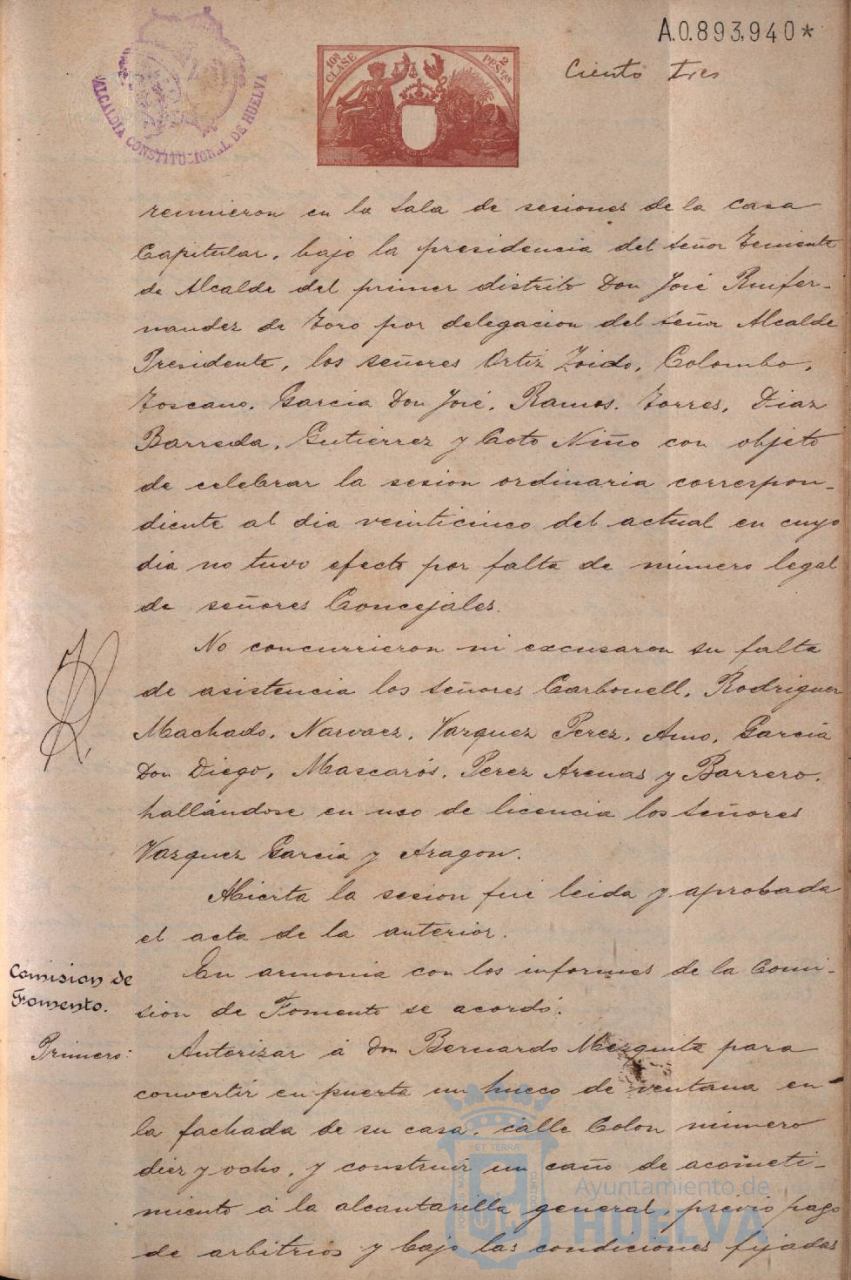 A.0.893,940*
Ciento tres
ALCALDIA CONSTITUCIONAL DE HUELVA
10ª CLASE
2 PESETAS
reunieron en la Sala de sesiones de la Casa
Capitular, bajo la presidencia del Señor Teniente
de Alcalde del primer distrito Don José Ruifer-
nandez de Toro por delegacion del Señor Alcalde
Presidente, los señores Ortiz Zoido, Colombo,
Toscano, Garcia Don José, Ramos, Torres, Diaz
Barreda, Gutierrez y Coto Niño con objeto
de celebrar la sesion ordinaria correspon-
diente al dia veinticinco del actual en cuyo
dia no tuvo efecto por falta de número legal
de señores Concejales.
No concurrieron ni excusaron su falta
de asistencia los Señores Carbonell, Rodriguez
Machado, Narvaez, Vazquez Perez, Amo, García
Don Diego, Mascarós, Perez Arenas y Barrero,
hallándose en uso de licencia los Señores
Vazquez García y Aragon.
Abierta la sesion fué leida y aprobada
el acta de la anterior.
Comision de
Fomento.
En armonia con los informes de la Comi-
sion de Fomento se acordó:
Primero:
Autorizar á Don Bernardo Mezquita para
convertir en puerta un hueco de ventana en
la fachada de su casa, calle Colon número
diez y ocho, y construir un caño de acometi-
miento á la alcantarilla general previo pago
de arbitrios y bajo las condiciones fijadas
Ayuntamiento de
HUELVA